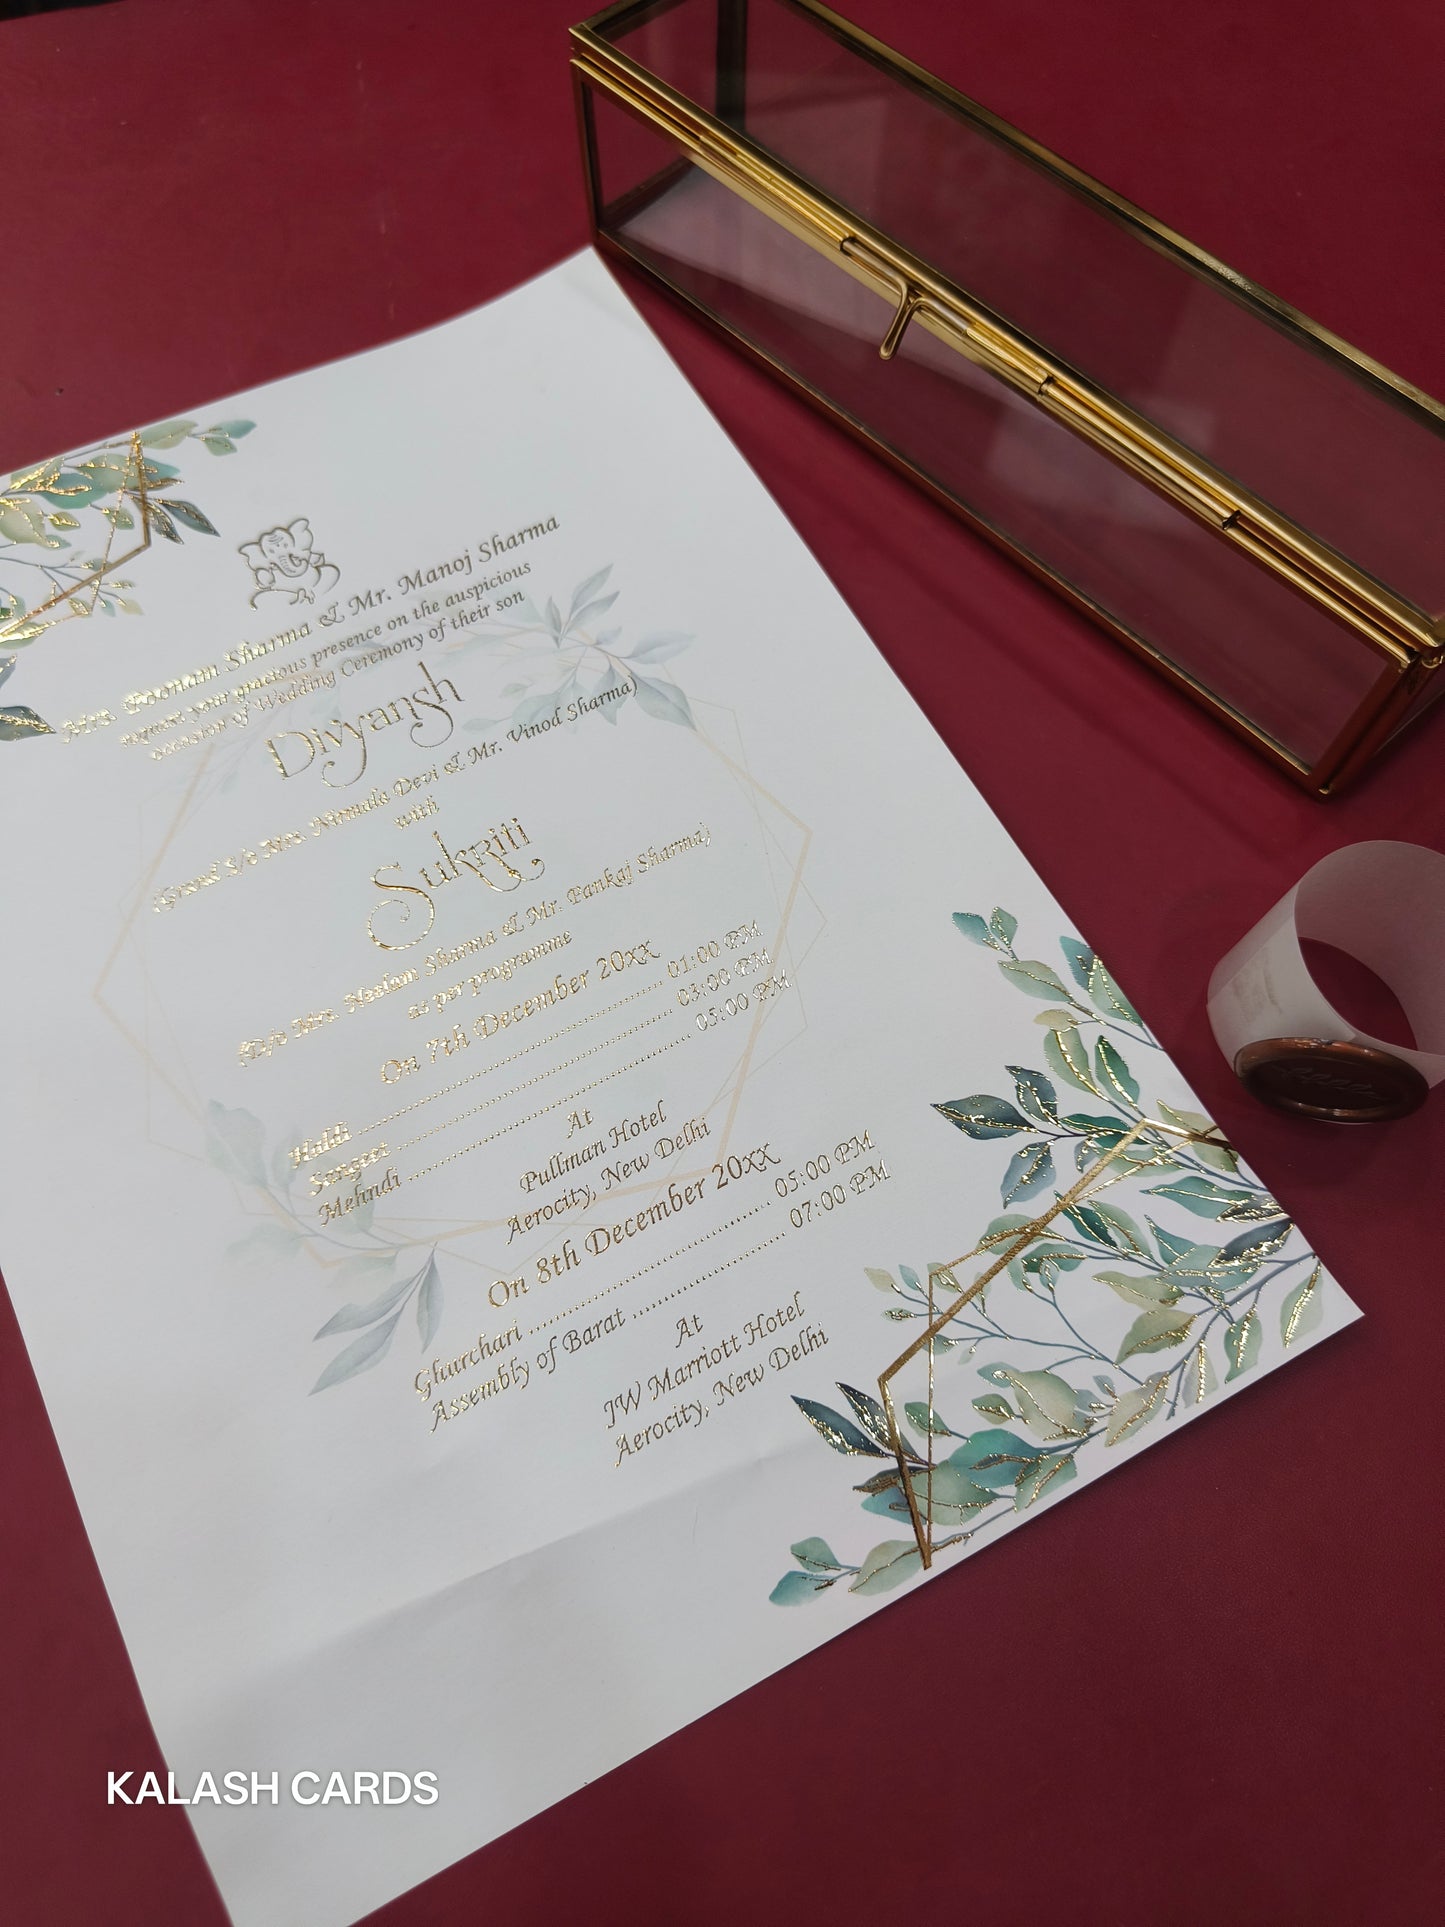 Mrs. Poonam Sharma & Mr. Manoj Sharma
request your gracious presence on the auspicious
occasion of Wedding Ceremony of their son
Divyansh
(Grand S/o Mrs. Nirmala Devi & Mr. Vinod Sharma)
with
Sukriti
(D/o Mrs. Neelam Sharma & Mr. Pankaj Sharma)
as per programme
On 7th December 20xx
Haldi .......................................................... 01:00 PM
Sangeet .......................................................... 03:00 PM
Mehndi .......................................................... 05:00 PM
At
Pullman Hotel
Aerocity, New Delhi
On 8th December 20xx
Ghurchari .................................................. 05:00 PM
Assembly of Barat ............................... 07:00 PM
At
JW Marriott Hotel
Aerocity, New Delhi
KALASH CARDS